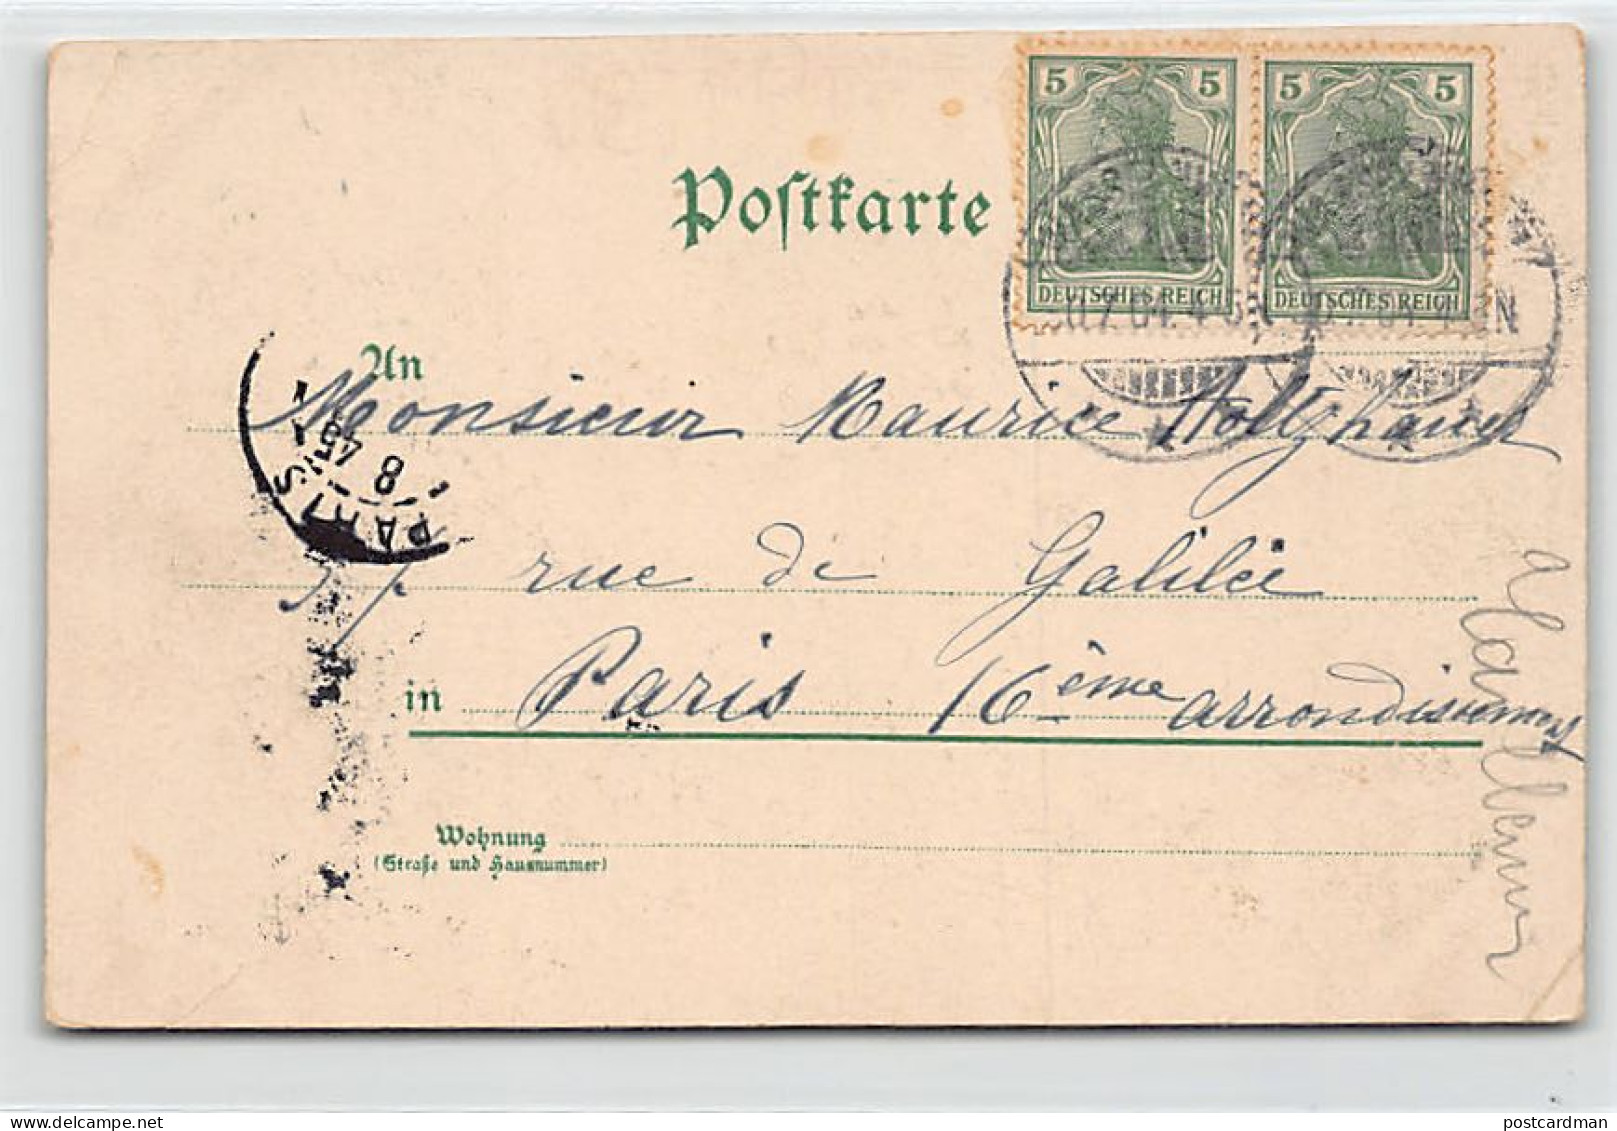 5 5 5 5
Postkarte
DEUTSCHES REICH DEUTSCHES REICH
An
Monsieur Maurice Holtzhauer
PARIS
8
45
rue de Galilée
in Paris 16ème arrondissement
Wohnung
(Straße und Hausnummer)
postcardman